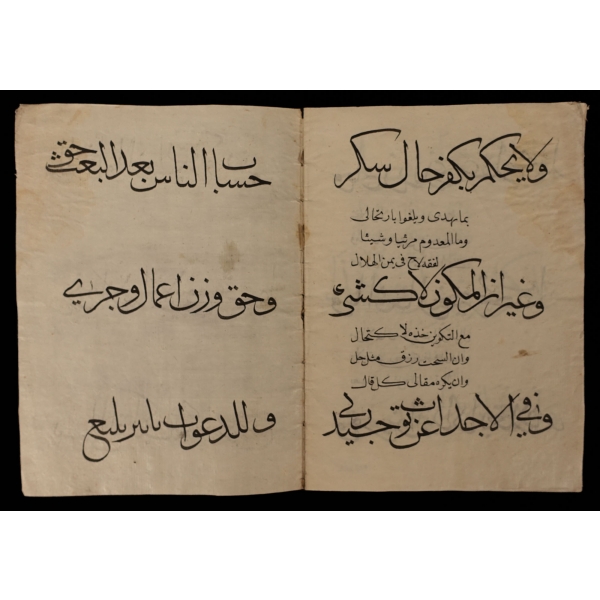 ولا يحكم بكفر حال سكر
بما يهدى ويلغوا بارتحالى
وما المعدوم مرئيا وشيئا
لفقه لاح فى يمن الهلال
وغيران المكون لا كشئ
مع التكوين خذه لاكتحال
وان السحت رزق مثل حل
وان يكره مقالى كل قال
وفي الاجداث عن توحيد ربي
حساب الناس بعد البعث حق
وحق وزن اعمال وجري
وللدعوات تاثير بليغ